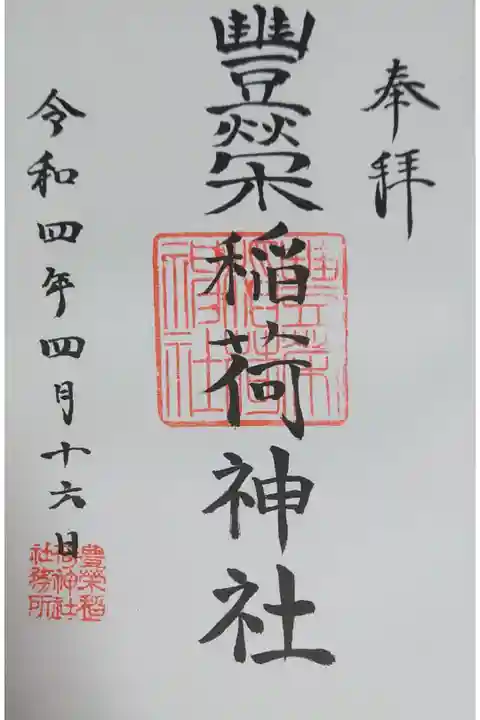 奉拝
豐榮稲荷神社
豊榮稲荷神社
令和四年四月十六日
豊榮稲荷神社社務所